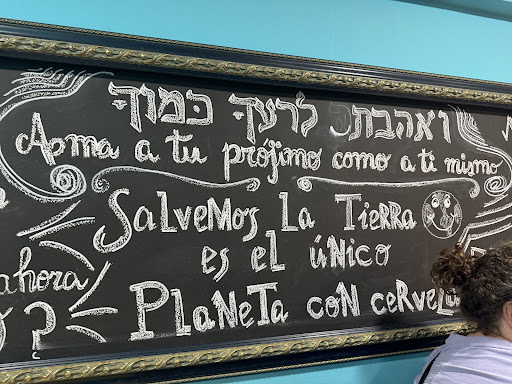 ואהבת לרעך כמוך
Ama a tu projimo como a ti mismo
Salvemos La Tierra
es el único
ahora
Planeta con cerveza
?